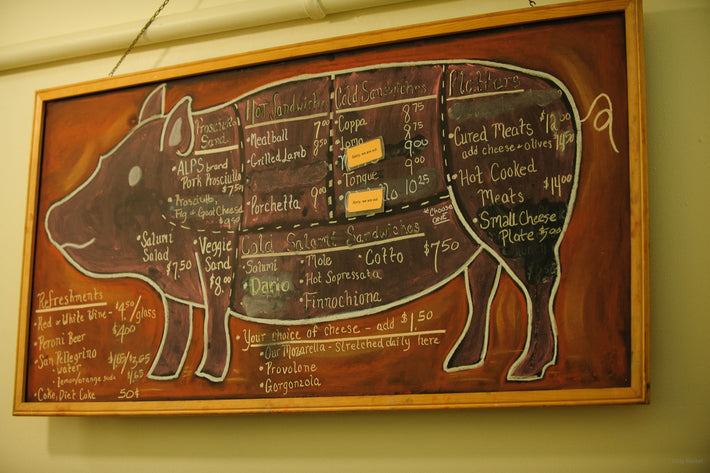 Prosciutto
Sand.
ALPS brand
Pork Prosciutto
$7.50
Prosciutto,
Fig & Goat Cheese
Hot Sandwiches
• Meatball 7.00
• Grilled Lamb 8.50
• Porchetta 9.00
Cold Sandwiches
Coppa 8.75
8.75
9.00
9.00
Tongue
10.25
Sorry, we are out
Sorry, we are out
Platters
• Cured Meats $12.00
add cheese + olives
• Hot Cooked
Meats $14.00
• Small Cheese
Plate $5.00
• Salumi
Salad
$7.50
Veggie
Sand
$8.00
Cold Salami Sandwiches
• Choose
ONE
$7.50
• Salumi • Mole • Cotto
• Dario • Hot Sopressata
• Finnochiona
Refreshments
• Red or White Wine - $4.50/glass
• Peroni Beer $4.00
• San Pellegrino
water
• lemon/orange soda $1.65
• Coke, Diet Coke 50¢
• Your choice of cheese - add $1.50
• Our Mozarella - stretched daily here
• Provolone
• Gorgonzola